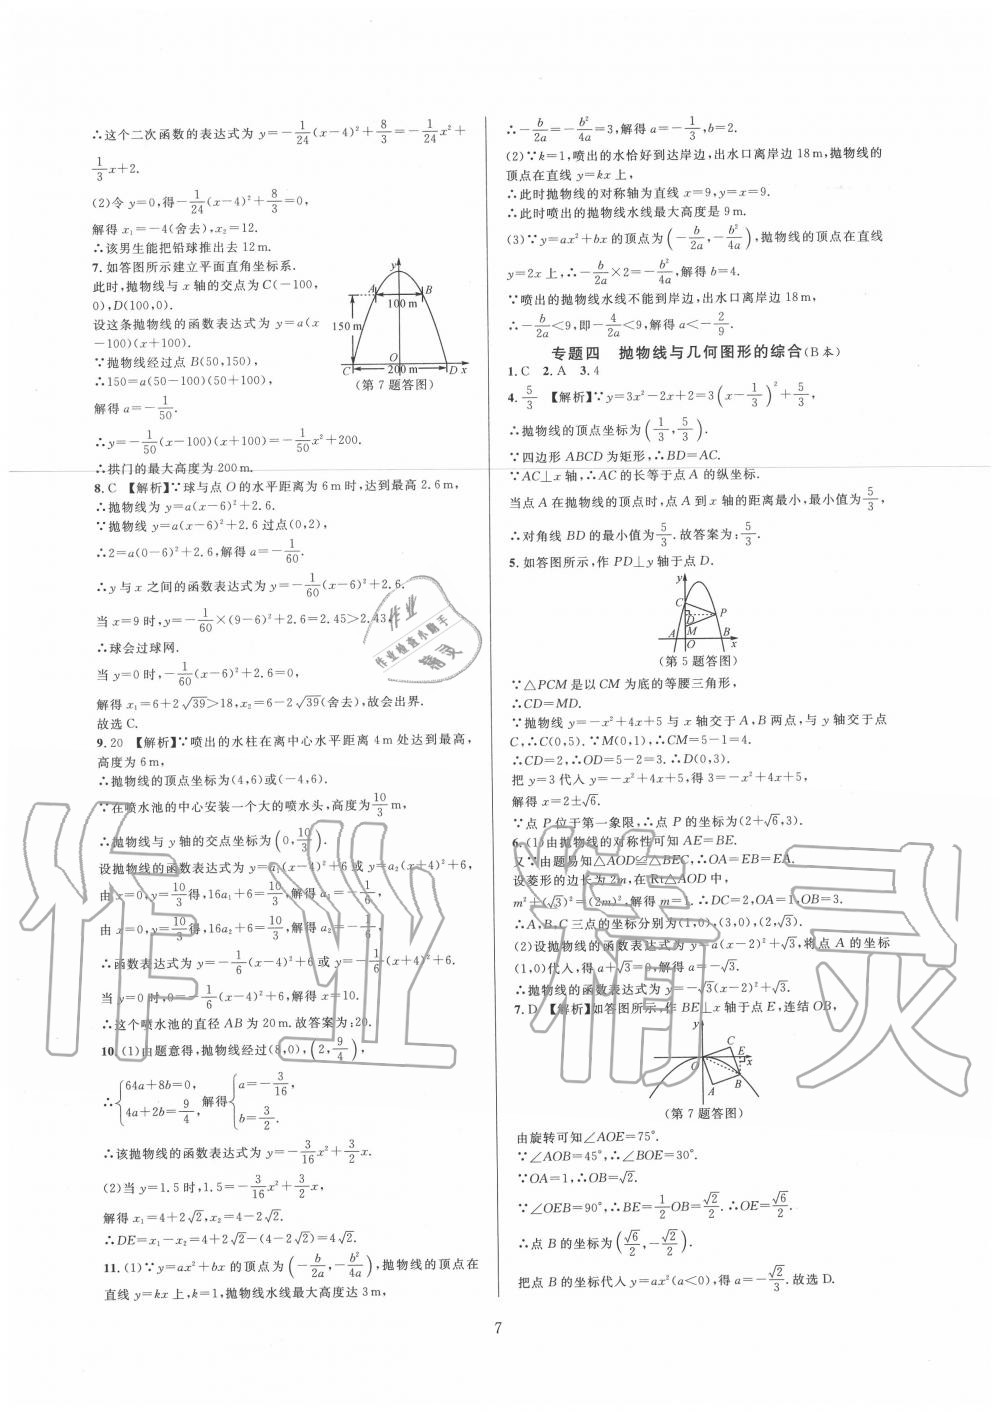 ∴这个二次函数的表达式为 y=-1/24(x-4)²+8/3=-1/24x²+
1/3x+2.
(2)令 y=0,得-1/24(x-4)²+8/3=0,
解得 x₁=-4(舍去),x₂=12.
∴该男生能把铅球推出去 12m.
7.如答图所示建立平面直角坐标系.
此时,抛物线与 x 轴的交点为 C(-100,
0),D(100,0).
设这条抛物线的函数表达式为 y=a(x
-100)(x+100).
∵抛物线经过点 B(50,150),
∴150=a(50-100)(50+100),
解得 a=-1/50.
y
A
B
100m
150m
O
C
200m
D x
(第 7 题答图)
∴y=-1/50(x-100)(x+100)=-1/50x²+200.
∴拱门的最大高度为 200m.
8.C 【解析】∵球与点 O 的水平距离为 6m 时,达到最高 2.6m,
∴抛物线为 y=a(x-6)²+2.6.
∵抛物线 y=a(x-6)²+2.6 过点(0,2),
∴2=a(0-6)²+2.6,解得 a=-1/60.
∴y 与 x 之间的函数表达式为 y=-1/60(x-6)²+2.6.
当 x=9 时,y=-1/60×(9-6)²+2.6=2.45>2.43,
∴球会过球网.
当 y=0 时,-1/60(x-6)²+2.6=0,
解得 x₁=6+2√39>18,x₂=6-2√39(舍去),故会出界.
故选 C.
9.20 【解析】∵喷出的水柱在离中心水平距离 4m 处达到最高,
高度为 6m,
∴抛物线的顶点坐标为(4,6)或(-4,6).
∵在喷水池的中心安装一个大的喷水头,高度为10/3m,
∴抛物线与 y 轴的交点坐标为(0,10/3).
设抛物线的函数表达式为 y=a₁(x-4)²+6 或 y=a₂(x+4)²+6,
由 x=0,y=10/3得,16a₁+6=10/3,解得 a₁=-1/6,
由 x=0,y=10/3得,16a₂+6=10/3,解得 a₂=-1/6,
∴函数表达式为 y=-1/6(x-4)²+6 或 y=-1/6(x+4)²+6.
当 y=0 时,0=-1/6(x-4)²+6,解得 x=10.
∴这个喷水池的直径 AB 为 20m.故答案为:20.
10.(1)由题意得,抛物线经过(8,0),(2,9/4),
∴{64a+8b=0, 4a+2b=9/4, 解得{a=-3/16, b=3/2.
∴该抛物线的函数表达式为 y=-3/16x²+3/2x.
(2)当 y=1.5 时,1.5=-3/16x²+3/2x,
解得 x₁=4+2√2,x₂=4-2√2.
∴DE=x₁-x₂=4+2√2-(4-2√2)=4√2.
11.(1)∵y=ax²+bx 的顶点为(-b/2a,-b²/4a),抛物线的顶点在
直线 y=kx 上,k=1,抛物线水线最大高度达 3m,
∴-b/2a=-b²/4a=3,解得 a=-1/3,b=2.
(2)∵k=1,喷出的水恰好到达岸边,出水口离岸边 18m,抛物线的
顶点在直线 y=kx 上,
∴此时抛物线的对称轴为直线 x=9,y=x=9.
∴此时喷出的抛物线水线最大高度是 9m.
(3)∵y=ax²+bx 的顶点为(-b/2a,-b²/4a),抛物线的顶点在直线
y=2x 上,∴-b/2a×2=-b²/4a,解得 b=4.
∵喷出的抛物线水线不能到岸边,出水口离岸边 18m,
∴-b/2a<9,即-4/2a<9,解得 a<-2/9.
专题四 抛物线与几何图形的综合(B 本)
1.C 2.A 3.4
4.5/3 【解析】∵y=3x²-2x+2=3(x-1/3)²+5/3,
∴抛物线的顶点坐标为(1/3,5/3).
∵四边形 ABCD 为矩形,∴BD=AC.
∵AC⊥x 轴,∴AC 的长等于点 A 的纵坐标.
当点 A 在抛物线的顶点时,点 A 到 x 轴的距离最小,最小值为5/3,
∴对角线 BD 的最小值为5/3.故答案为:5/3.
5.如答图所示,作 PD⊥y 轴于点 D.
y
C
D
P
M
A
B
O
x
(第 5 题答图)
∵△PCM 是以 CM 为底的等腰三角形,
∴CD=MD.
∵抛物线 y=-x²+4x+5 与 x 轴交于 A,B 两点,与 y 轴交于点
C,∴C(0,5).∵M(0,1),∴CM=5-1=4.
∴CD=2,∴OD=5-2=3.∴D(0,3).
把 y=3 代人 y=-x²+4x+5,得 3=-x²+4x+5,
解得 x=2±√6.
∵点 P 位于第一象限,∴点 P 的坐标为(2+√6,3).
6.(1)由抛物线的对称性可知 AE=BE.
又∵由题易知△AOD≌△BEC,∴OA=EB=EA.
设菱形的边长为 2m,在 Rt△AOD 中,
m²+(√3)²=(2m)²,解得 m=1.∴DC=2,OA=1,OB=3.
∴A,B,C 三点的坐标分别为(1,0),(3,0),(2,√3).
(2)设抛物线的函数表达式为 y=a(x-2)²+√3,将点 A 的坐标
(1,0)代人,得 a+√3=0,解得 a=-√3.
∴抛物线的函数表达式为 y=-√3(x-2)²+√3.
7.D 【解析】如答图所示,作 BE⊥x 轴于点 E,连结 OB,
y
C
E
O
x
A
B
(第 7 题答图)
由旋转可知∠AOE=75°.
∵∠AOB=45°,∴∠BOE=30°.
∵OA=1,∴OB=√2.
∵∠OEB=90°,∴BE=1/2OB=√2/2.∴OE=√6/2.
∴点 B 的坐标为(√6/2,-√2/2).
把点 B 的坐标代人 y=ax²(a<0),得 a=-√2/3.故选 D.
7
作业
作业检查小助手
精灵
作业精灵